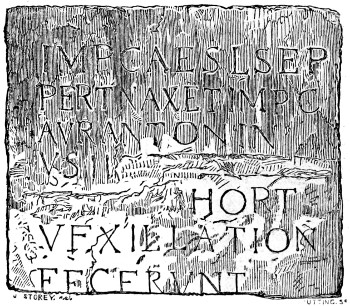 IMPCAESLSEP
PERTNAXETIMPC
AVRANTONIN
VS
HORT
VEXILLATION
FECERVNT
W STOREY.
UTTING. Sc